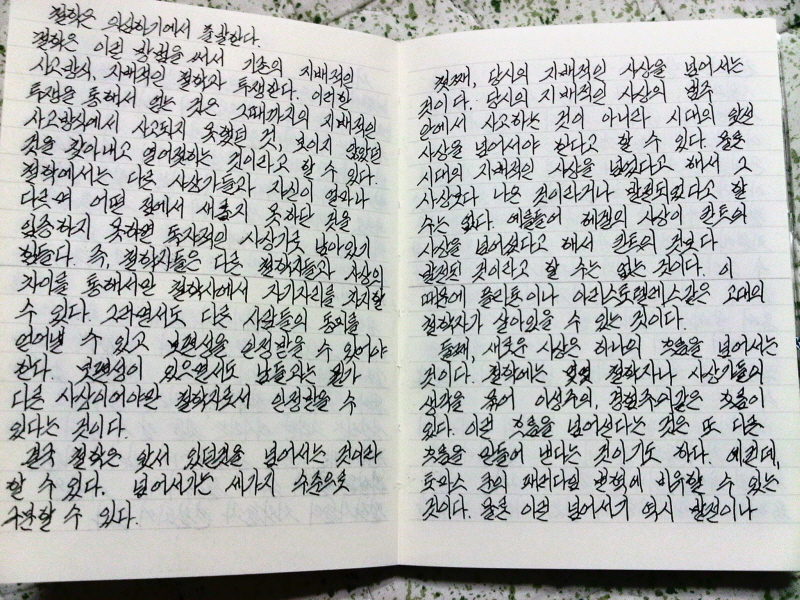 철학은 의심하기에서 출발한다.
철학은 이런 방법을 써서 기존의 지배적인
사고방식, 지배적인 철학과 투쟁한다. 이러한
투쟁을 통해서 얻는 것은 그때까지의 지배적인
사고방식에서 사고되지 못했던 것, 보이지 않았던
것을 찾아내고 열어젖히는 것이라고 할 수 있다.
철학에서는 다른 사상가들과 자신이 얼마나
다르며 어떤 점에서 새롭지 못하단 것을
입증하지 못하면 독자적인 사상가로 남아있기
힘들다. 즉, 철학자들은 다른 철학자들과 사상의
차이를 통해서만 철학사에서 자기자리를 차지할
수 있다. 그러면서도 다른 사람들의 동의를
얻어낼 수 있고 보편성을 인정받을 수 있어야
한다. 보편성이 있으면서도 남들과는 뭔가
다른 사상이어야만 철학자로서 인정받을 수
있다는 것이다.
결국 철학은 앞서 있던것을 넘어서는 것이라
할 수 있다. 넘어서기는 세가지 수준으로
구분할 수 있다.
첫째, 당시의 지배적인 사상을 넘어서는
것이다. 당시의 지배적인 사상의 범주
안에서 사고하는 것이 아니라 시대의 앞선
사상을 넘어서야 한다고 할 수 있다. 물론
시대의 지배적인 사상을 넘었다고 해서 그
사상보다 나은 것이라거나 발전되었다고 할
수는 없다. 예를들어 헤겔의 사상이 칸트의
사상을 넘어섰다고 해서 칸트의 것보다
발전된 것이라고 할 수는 없는 것이다. 이
때문에 플라톤이나 아리스토텔레스같은 고대의
철학자가 살아있을 수 있는 것이다.
둘째, 새로운 사상은 하나의 흐름을 넘어서는
것이다. 철학에는 몇몇 철학자나 사상가들의
생각을 묶어 이성주의, 경험주의같은 흐름이
있다. 이런 흐름을 넘어선다는 것은 또 다른
흐름을 만들어 낸다는 것이기도 하다. 예컨대,
토마스 쿤의 패러다임 변혁에 비유할 수 있는
것이다. 물론 이런 넘어서기 역시 발전이나